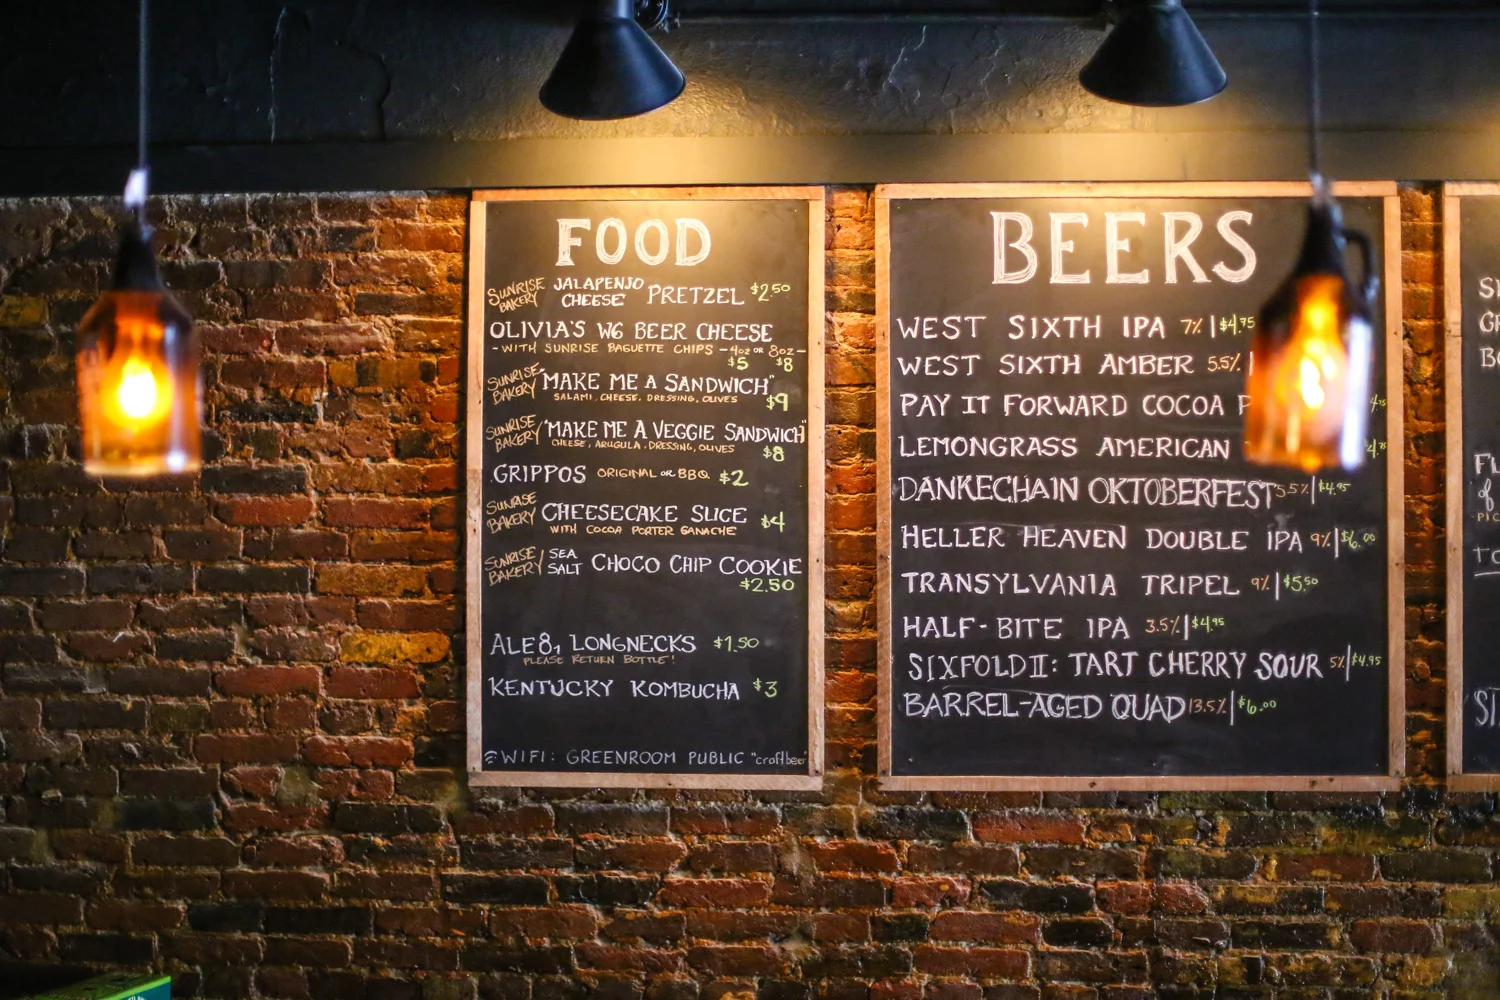 FOOD
SUNRISE BAKERY JALAPENJO CHEESE PRETZEL $2.50
OLIVIA'S W6 BEER CHEESE
- WITH SUNRISE BAGUETTE CHIPS - 4oz OR 8oz -
$5 $8
SUNRISE BAKERY "MAKE ME A SANDWICH"
SALAMI, CHEESE, DRESSING, OLIVES $9
SUNRISE BAKERY "MAKE ME A VEGGIE SANDWICH"
CHEESE, ARUGULA, DRESSING, OLIVES $8
GRIPPOS ORIGINAL OR BBQ $2
SUNRISE BAKERY CHEESECAKE SLICE $4
WITH COCOA PORTER GANACHE
SUNRISE BAKERY / SEA SALT CHOCO CHIP COOKIE
$2.50
ALE 8, LONGNECKS $1.50
PLEASE RETURN BOTTLE!
KENTUCKY KOMBUCHA $3
WIFI: GREENROOM PUBLIC "craftbeer
BEERS
WEST SIXTH IPA 7% | $4.75
WEST SIXTH AMBER 5.5% |
PAY IT FORWARD COCOA P
LEMONGRASS AMERICAN
DANKECHAIN OKTOBERFEST 5.5% | $4.95
HELLER HEAVEN DOUBLE IPA 9% | $6.00
TRANSYLVANIA TRIPEL 9% | $5.50
HALF-BITE IPA 3.5% | $4.95
SIXFOLD II: TART CHERRY SOUR 5% | $4.95
BARREL-AGED QUAD 13.5% | $6.00